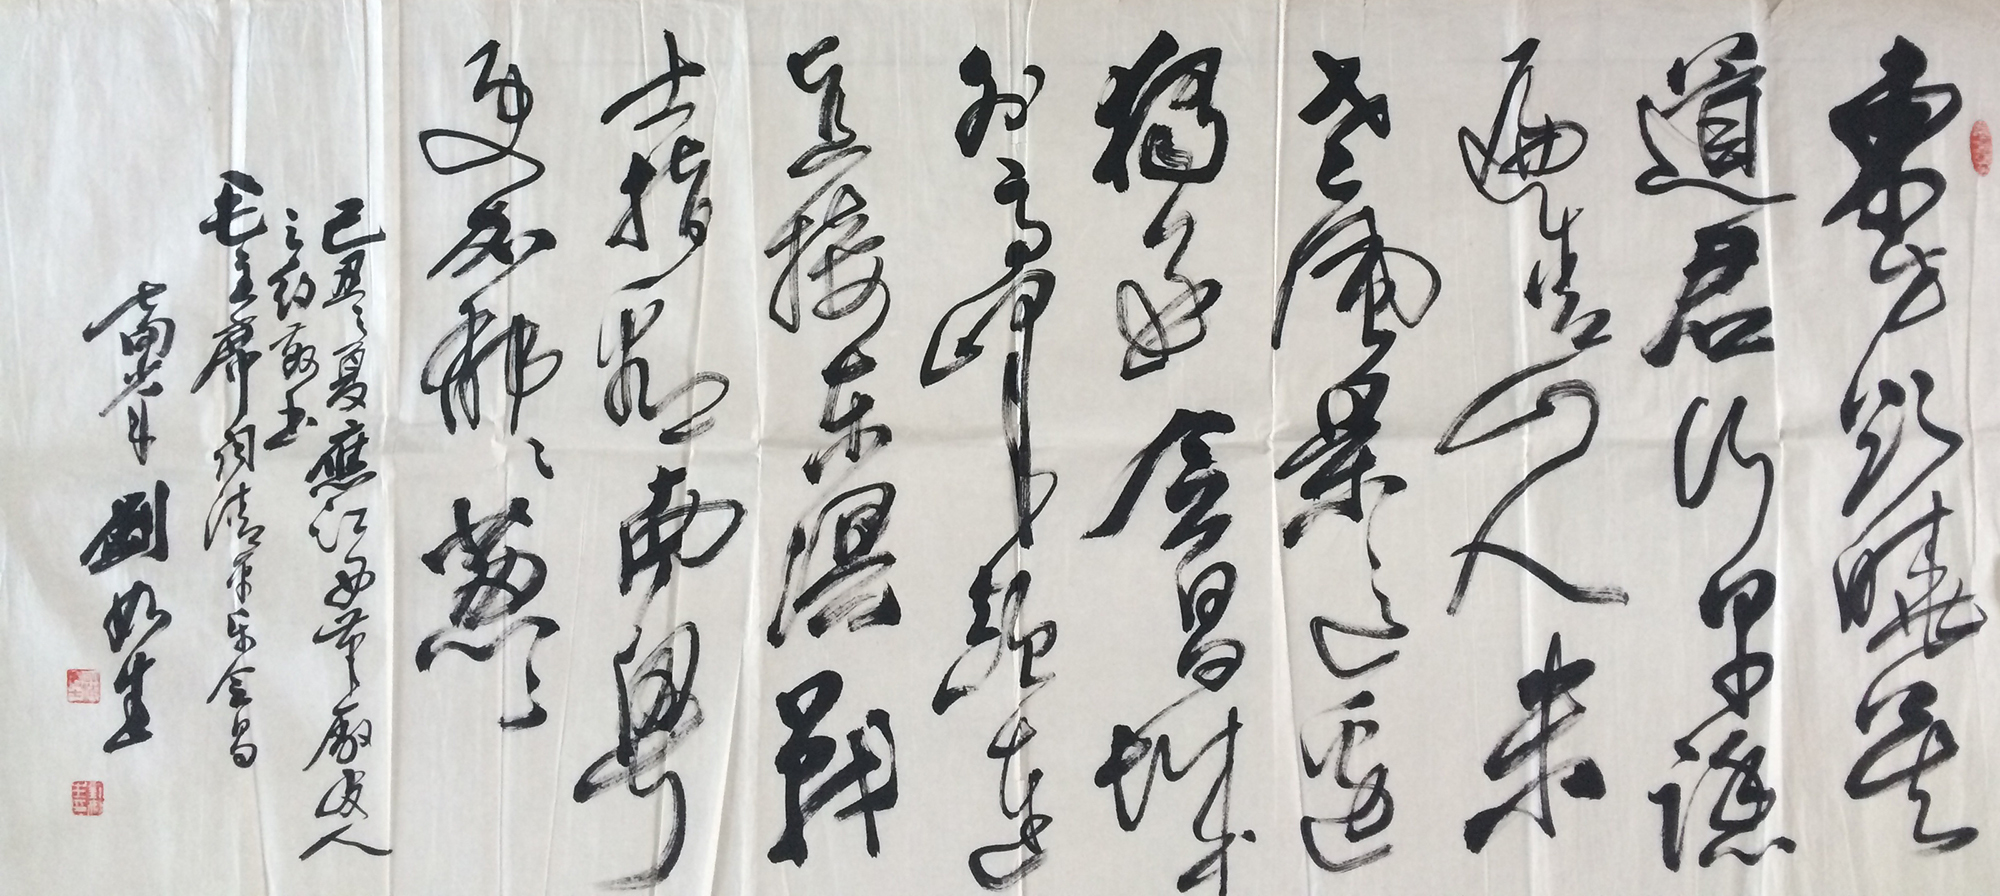 東方欲曉莫
道君行早踏
遍青山人未
老風景這邊
獨好会昌城
外高峰顛連
直接東溟戰
士指看南粵
更加郁々葱々
己丑之夏應江西友人
之約敬書
毛主席词清平乐会昌
劉如生